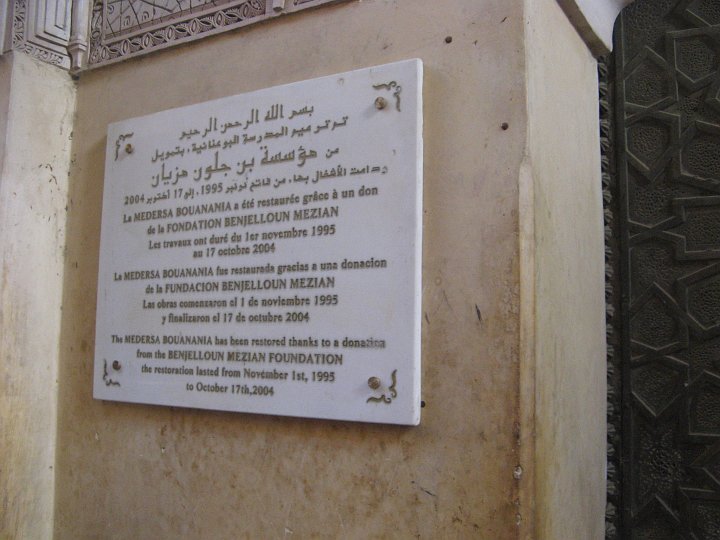 بسم الله الرحمن الرحيم
تم ترميم المدرسة البوعنانية، بتمويل
من مؤسسة بن جلون مزيان
ودامت الأشغال بها، من فاتح نونبر 1995، إلى 17 أكتوبر 2004
La MEDERSA BOUANANIA a été restaurée grâce à un don
de la FONDATION BENJELLOUN MEZIAN
Les travaux ont duré du 1er novembre 1995
au 17 octobre 2004
La MEDERSA BOUANANIA fue restaurada gracias a una donacion
de la FUNDACION BENJELLOUN MEZIAN
Las obras comenzaron el 1 de noviembre 1995
y finalizaron el 17 de octubre 2004
The MEDERSA BOUANANIA has been restored thanks to a donation
from the BENJELLOUN MEZIAN FOUNDATION
the restoration lasted from November 1st, 1995
to October 17th,2004